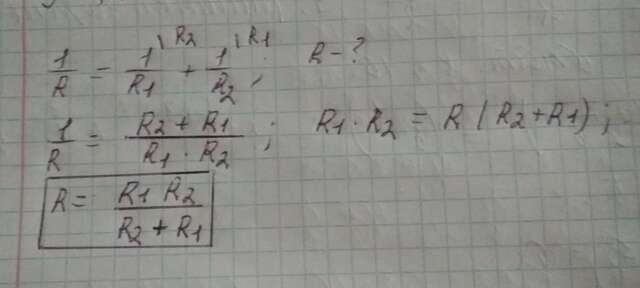 1/R = 1\R2/R1 + 1\R1/R2; R - ?
1/R = R2 + R1/R1 · R2; R1 · R2 = R (R2 + R1);
R = R1 R2/R2 + R1